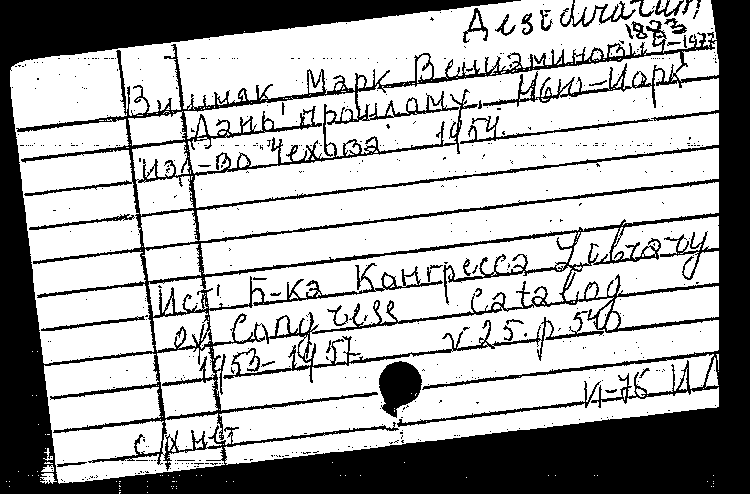 Desideratum
1883-1977
Вишняк Марк Вениаминович
Дань прошлому. Нью-Йорк
Изд-во Чехова 1954.
Ист: Б-ка Конгресса Library
of Congress catalog
1953-1957. v 25. p. 540
И-76
с/х нет